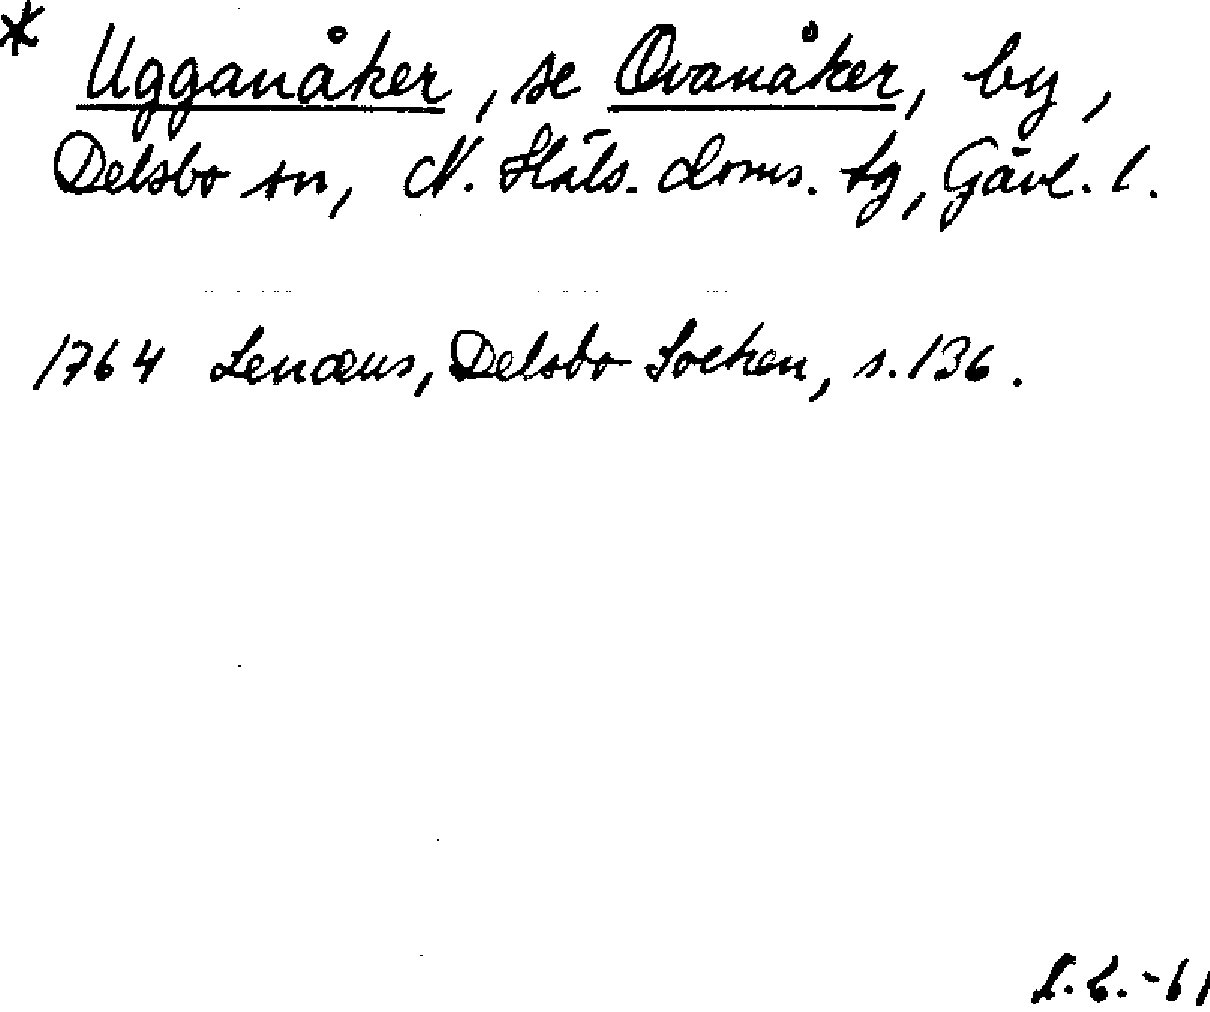 * Ugganåker, se Ovanåker, by,
Delsbo sn, N. Häls. doms. tg, Gävl. l.
1764 Lenæus, Delsbo Socken, s. 136.